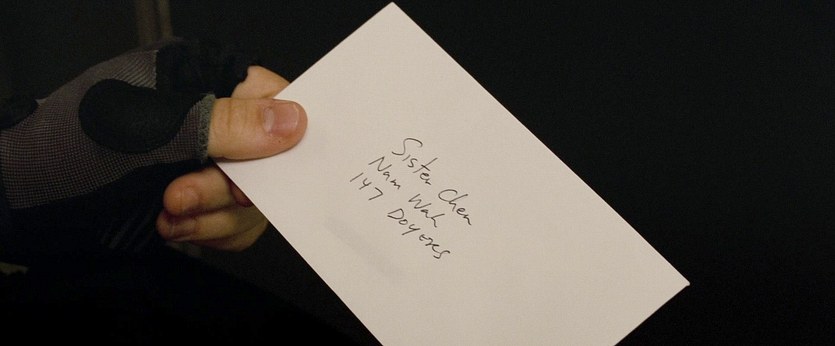 Sister Chen
Nam Wah
147 Doyers